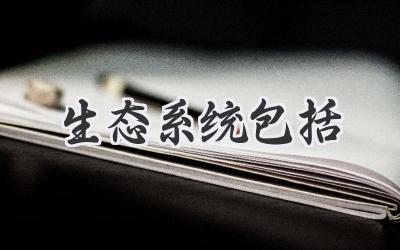 生态系统包括